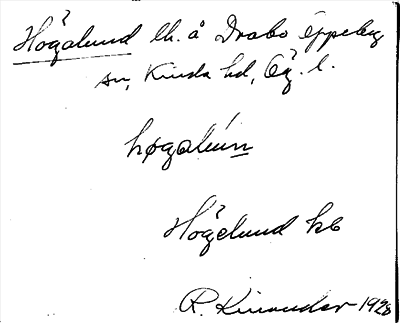 Högalund lh. å Drabo Oppeby
sn, Kinda hd, Ög. l.
høgalún
Högelund kb
R. Kinander 1928